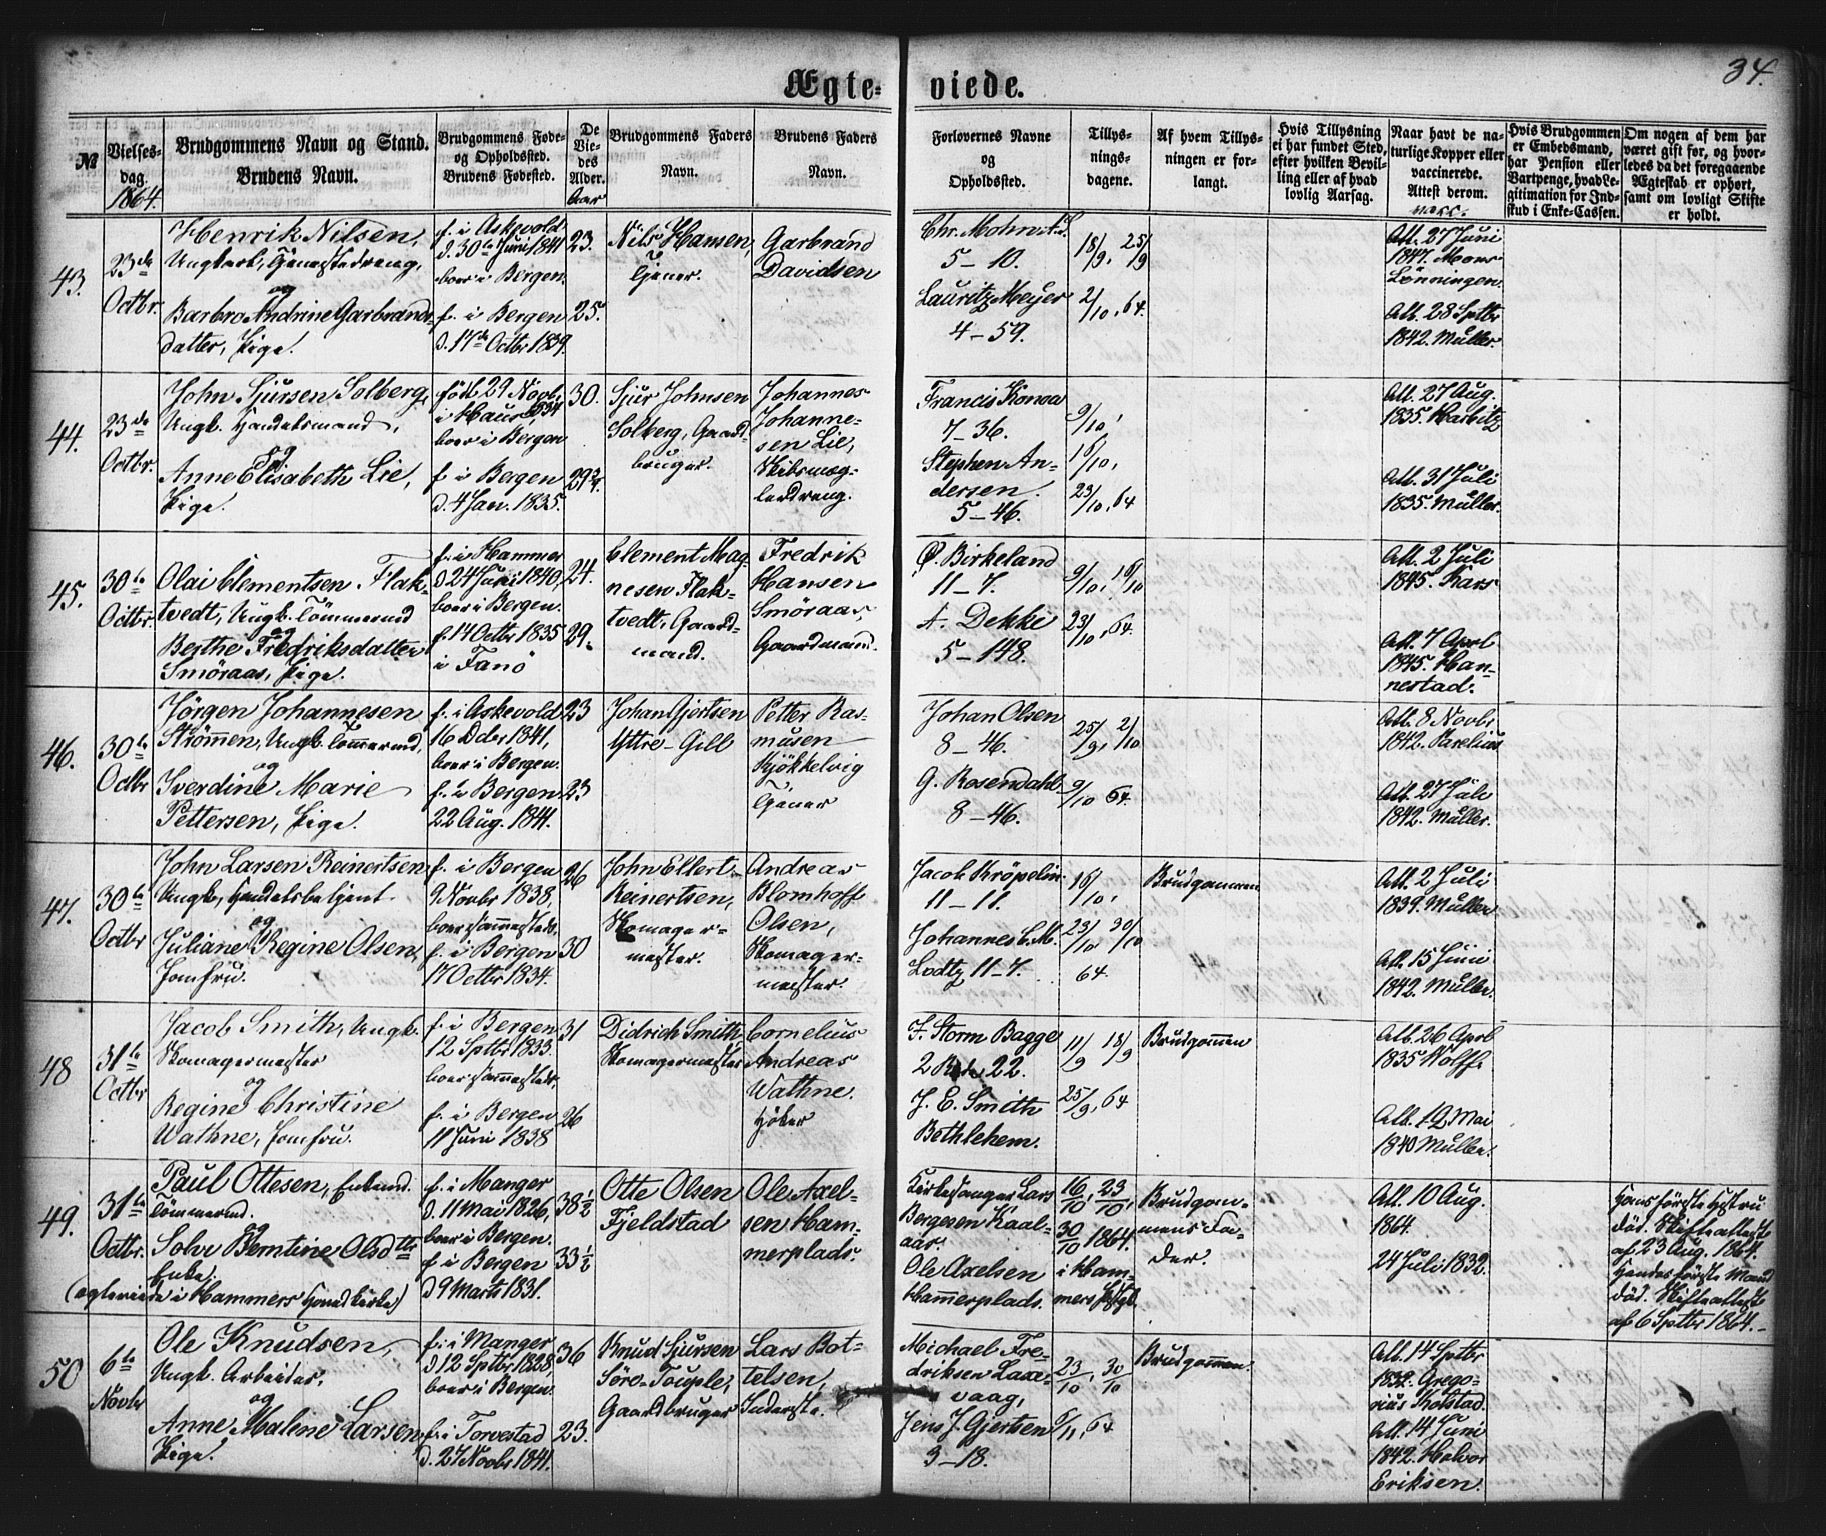 34.
Ægte- viede.
№
Vielses-
dag.
1864.
Brudgommens Navn og Stand.
Brudens Navn.
Brudgommens Føde-
og Opholdssted.
Brudens Fødested.
De
Vie-
des
Alder.
Aar
Brudgommens Faders
Navn.
Brudens Faders
Navn.
Forlovernes Navne
og
Opholdssted.
Tillys-
nings-
dagene.
Af hvem Tillys-
ningen er for-
langt.
Hvis Tillysning
ei har fundet Sted,
efter hvilken Bevil-
ling eller af hvad
lovlig Aarsag.
Naar havt de na-
turlige Kopper eller
vaccinerede.
Attest derom.
vacc.
Hvis Brudgommen
er Embedsmand,
har Pension eller
Vartpenge, hvad Le-
gitimation for Ind-
skud i Enke-Cassen.
Om nogen af dem har
været gift før, og hvor-
ledes da det foregaaende
Ægteskab er ophørt,
samt om lovligt Skifte
er holdt.
43.
23de
Octbr.
Henrik Nilsen,
Ungkarl,
og
Barbro Andrine Garbrands-
datter, Pige.
f. i Askevold
d. 30te Juni 1841
boer i Bergen.
f. i Bergen
d. 17de Octbr 1839.
23.
25.
Nils Hansen,
Tjener.
Garbrand
Davidsen
Chr. Mohr
5-10.
Lauritz Meyer
4-59.
18/9, 25/9
2/10, 64.
Att. 27 Juni
1847. Mons
Lønningen.
Att. 28 Septbr
1842. Müller.
44.
23de
Octbr.
John Sjursen Solberg,
Ungk. Handelsmand,
og
Anne Elisabeth Lie,
Pige.
født 29 Novb.
i Haus 1834
boer i Bergen
f. i Bergen
d. 4 Jan. 1835.
30.
29¾.
Sjur Johnsen
Solberg, Gaard-
bruger.
Johannes
Johanne-
sen Lie,
Skibsmæg-
lerdreng.
Francis Konow
7-36.
Stephen An-
dersen.
5-46.
9/10,
16/10,
23/10, 64
Att. 27 Aug.
1835. Harbitz
Att. 31 Juli
1835. Müller.
45.
30te
Octbr.
Olai Clementsen Flak-
tvedt, Ungk. Tömmermd
og
Berthe Fredriksdatter
Smöraas, Pige.
f. i Hammer
d 24 Juni 1840,
boer i Bergen.
f. 14 Octbr 1835
i Fanö
24.
29.
Clement Mag-
nesen Flak-
tvedt, Gaard-
mand.
Fredrik
Hansen
Smöraas,
Gaardmand.
Ø. Birkeland
11-7.
A. Dekke
5-148.
9/10, 16/10
23/10, 64.
Att. 2 Juli
1845. Kars
Att. 7 Aprl
1845. Han-
nestad.
46.
30te
Octbr
Jörgen Johannesen
Strömmen, Ungk. Tömmermd,
og
Sverdine Marie
Pettersen, Pige.
f. i Askevold
16 Dcbr 1841,
boer i Bergen.
f. i Bergen
22 Aug. 1841.
23
23
Johan Gjertsen
Yttre-Gill
Petter Ras-
musen
Kjökkelvig
Tjener
Johan Olsen
8-46.
G. Rosendahl
8-46.
25/9, 2/10
9/10 64.
Att. 8 Novbr
1842. Parelius
Att. 27 Juli
1842. Müller.
47.
30te
Octbr
John Larsen Reinertsen
Ungk, Handelsbetjent.
og
Juliane Regine Olsen,
Jomfru.
f. i Bergen
9 Novbr 1838,
boer sammesteds.
f. i Bergen
17 Octbr 1834.
26
30
John Ellert
Reinertsen,
Skomager-
mester.
Andreas
Blomhoff
Olsen,
Skomager-
mester.
Jacob Kröpelin.
11-11.
Johannes C. M.
Lodtz 11-7.
16/10,
23/10 30/10
64.
Brudgommen
Att. 2 Juli
1839. Müller
Att. 15 Juni
1842. Müller.
48
31te
Octbr
Jacob Smith, Ungk.
Skomagermester
og
Regine Christine
Wathne, Jomfru.
f. i Bergen
12 Septbr 1833.
boer sammesteds.
f. i Bergen
11 Juni 1838
31
26
Didrich Smith
Skomagermester
Cornelius
Andreas
Wathne.
Høker
F. Storm Bagge
2 Rode 22.
J. E. Smith
Bethlehem.
11/9 18/9
25/9, 64
Brudgommen
Att. 26 Aprl
1835 Wolff.
Att. 12 Mai
1840 Müller.
49.
31te
Octbr.
Paul Ottesen, Enkemd.
Tömmermd.
og
Solvi Berntine Olsdtr
Enke.
(egteviede i Hammers Hovedkirke)
f. i Manger
d. 11 Mai 1826,
boer i Bergen.
f i Bergen
d 9 Marts 1831.
38½
33½
Otte Olsen
Fjeldstad
Ole Axel-
sen Ham-
merplads.
Kirkesanger Lars
Bergesen Kaal-
aas.
Ole Axelsen
Hammerplads.
16/10, 23/10,
30/10 1864.
i Ham-
mers
Brudgom-
mens Fa-
der.
Att. 10 Aug.
1864.
24 Juli 1832.
Hans förste Hustru
död. Skifteattest
af 23 Aug. 1864.
Hendes förste Mand
död. Skifteattest
af 6 Septbr 1864.
50
6te
Novbr
Ole Knudsen,
Ungk. Arbeider,
og
Anne Malene Larsen,
Pige.
f. i Manger
d 12 Septbr 1828,
boer i Bergen.
f. i Torvestad
d. 27 Novbr 1841.
36
23.
Knud Sjursen
Söre-Touple,
Gaardbruger
Lars Bot-
telsen,
Inderste.
Michael Fre-
driksen Laxe-
vaag,
Jens J. Gjertsen
3-18.
23/10, 30/10
6/11, 64
Brudgommen.
Att. 14 Septbr
1832. Grego-
rius Kolstad.
Att. 14 Juni
1842. Halvor
Eriksen.